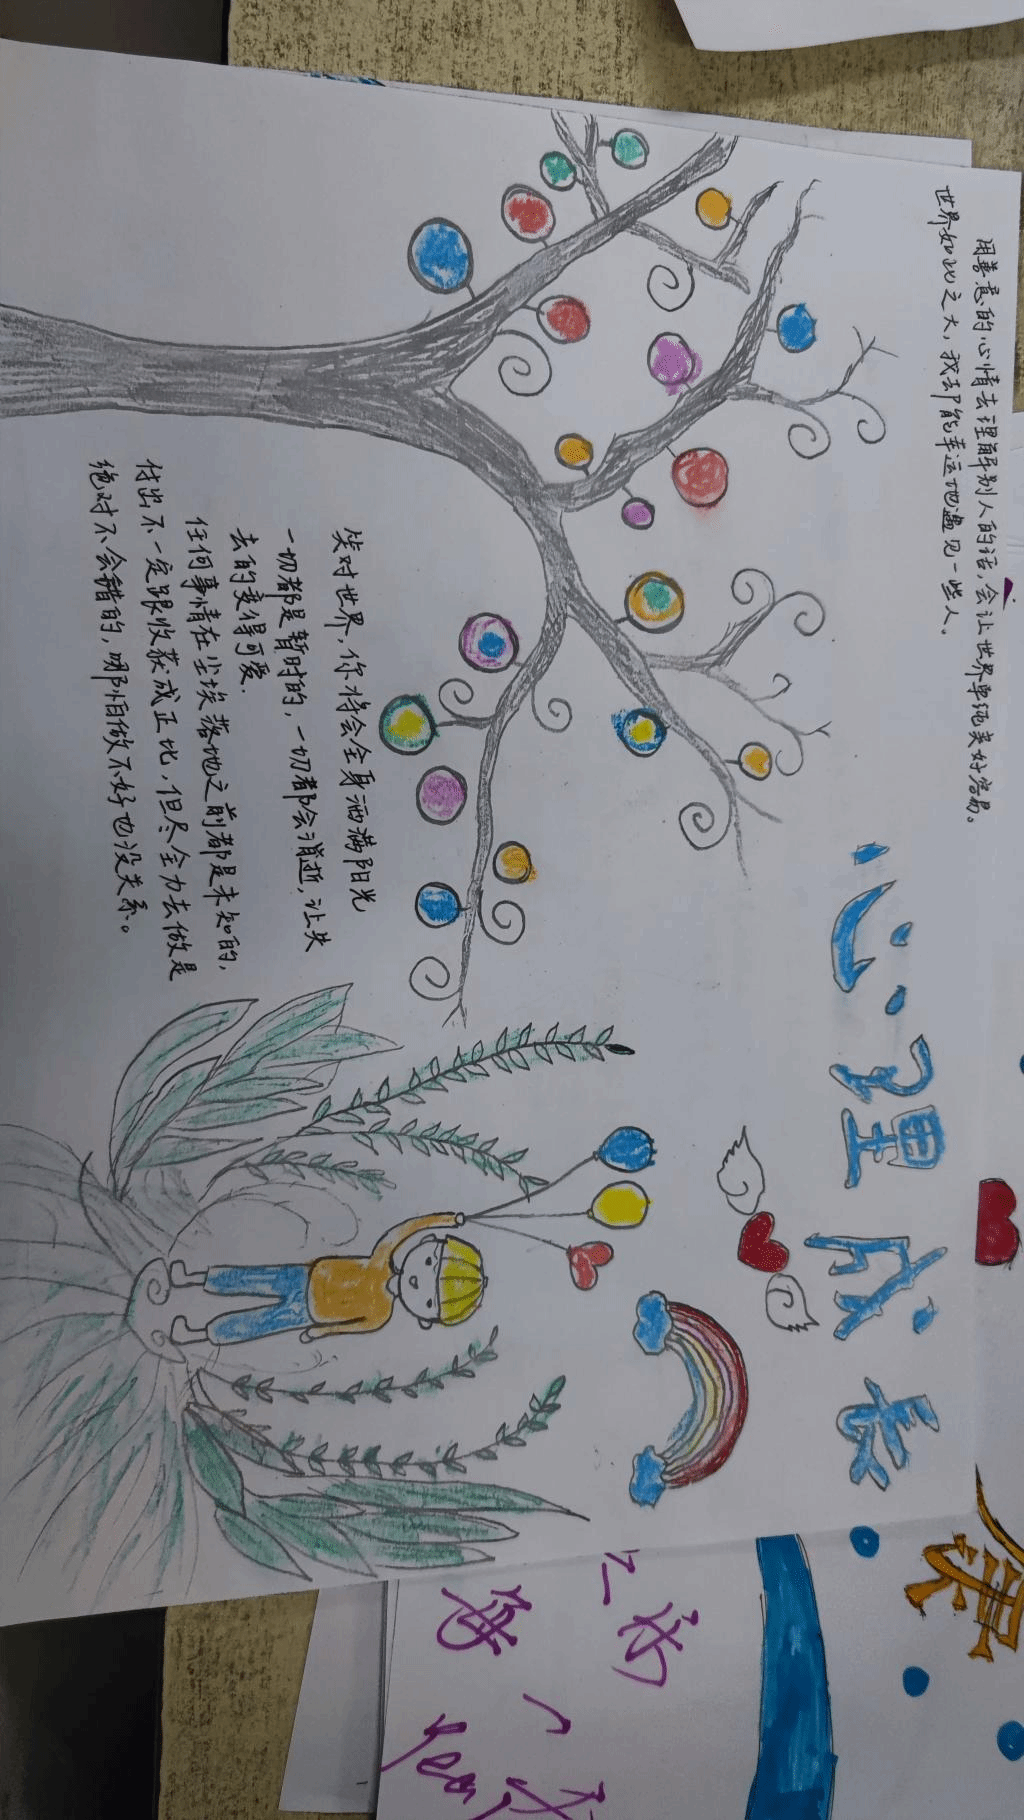 用善意的心情去理解别人的话,会让世界单纯美好容易。
世界如此之大,我却能幸运地遇见一些人.
心理成长
笑对世界、你将会全身洒满阳光
一切都是暂时的,一切都会消逝,让失
去的变得可爱.
任何事情在尘埃落地之前都是未知的,
付出不一定跟收获成正比,但尽全力去做是
绝对不会错的,哪怕做不好也没关系。